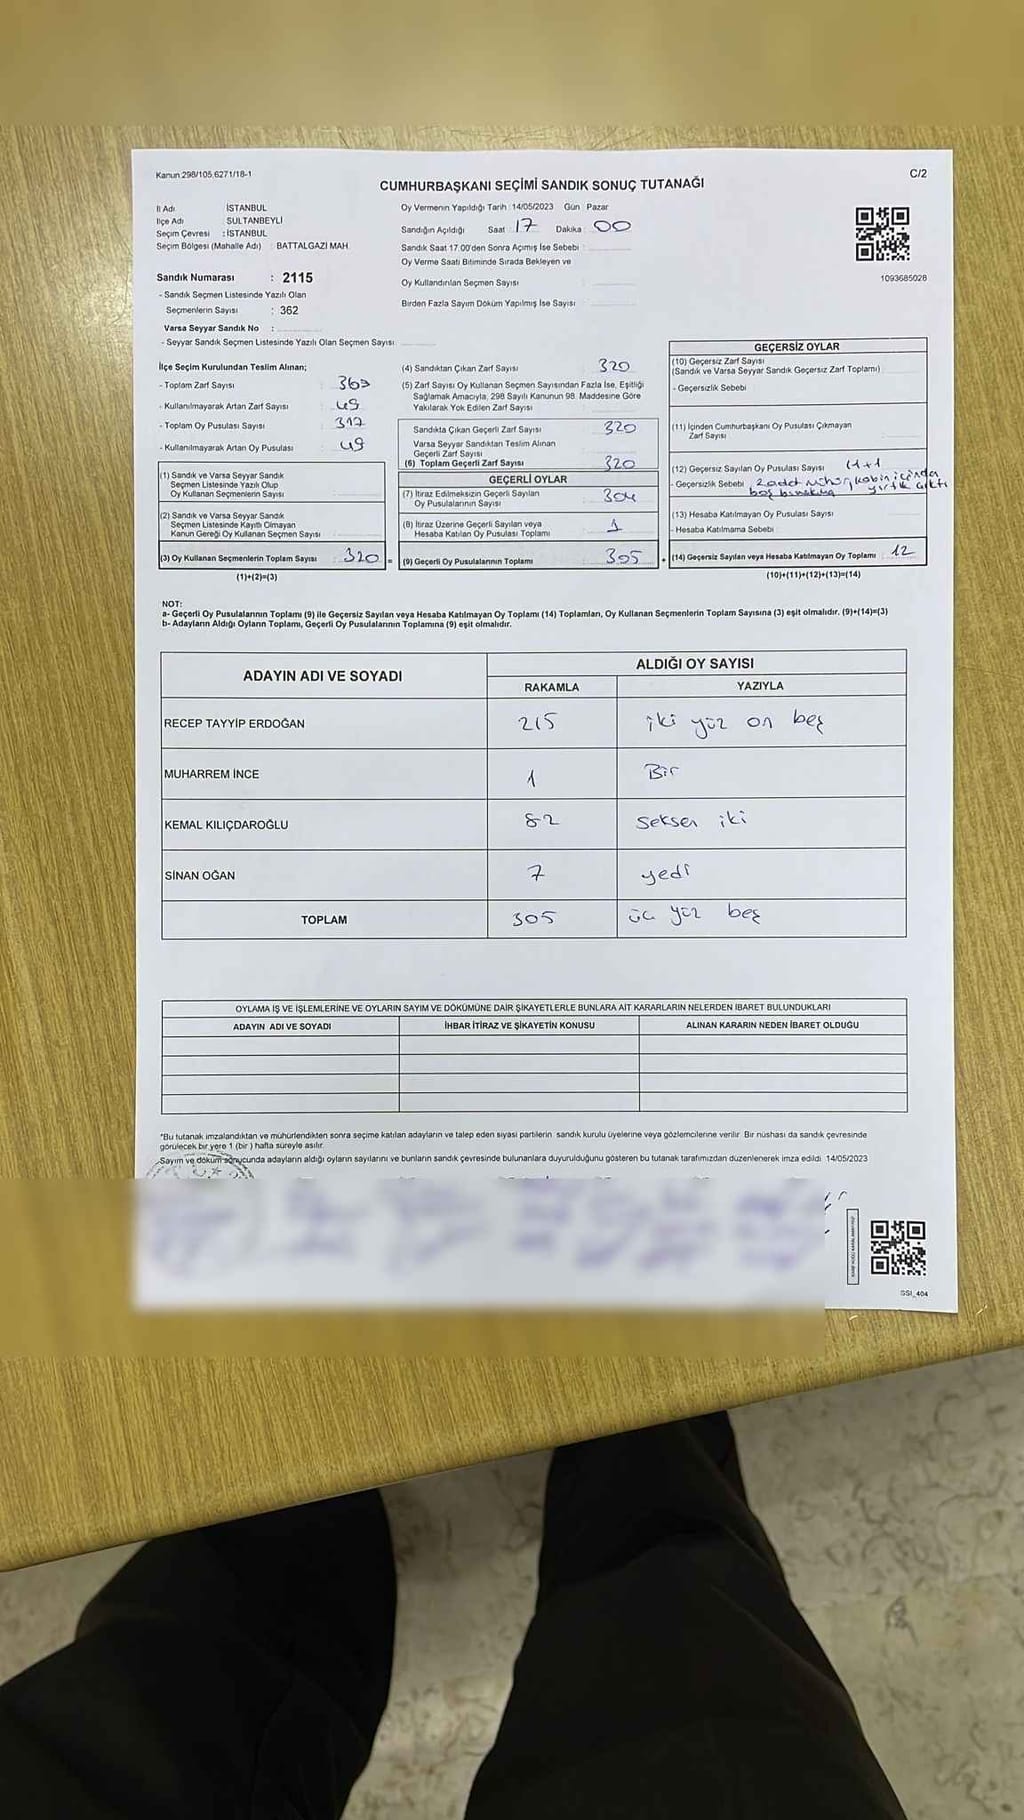 Kanun:298/105,6271/18-1
C/2
CUMHURBAŞKANI SEÇİMİ SANDIK SONUÇ TUTANAĞI
İl Adı İSTANBUL
İlçe Adı SULTANBEYLİ
Seçim Çevresi : İSTANBUL
Seçim Bölgesi (Mahalle Adı) : BATTALGAZİ MAH.
Sandık Numarası : 2115
- Sandık Seçmen Listesinde Yazılı Olan
Seçmenlerin Sayısı : 362
Varsa Seyyar Sandık No :
- Seyyar Sandık Seçmen Listesinde Yazılı Olan Seçmen Sayısı
Oy Vermenin Yapıldığı Tarih 14/05/2023 Gün Pazar
Sandığın Açıldığı Saat 17 Dakika 00
Sandık Saat 17.00'den Sonra Açımış İse Sebebi
Oy Verme Saati Bitiminde Sırada Bekleyen ve
Oy Kullandırılan Seçmen Sayısı
Birden Fazla Sayım Döküm Yapılmış İse Sayısı
1093685028
İlçe Seçim Kurulundan Teslim Alınan;
- Toplam Zarf Sayısı
- Kullanılmayarak Artan Zarf Sayısı 49
- Toplam Oy Pusulası Sayısı
- Kullanılmayarak Artan Oy Pusulası 49
(1) Sandık ve Varsa Seyyar Sandık
Seçmen Listesinde Yazılı Olup
Oy Kullanan Seçmenlerin Sayısı
(2) Sandık ve Varsa Seyyar Sandık
Seçmen Listesinde Kayıtlı Olmayan
Kanun Gereği Oy Kullanan Seçmen Sayısı
(3) Oy Kullanan Seçmenlerin Toplam Sayısı 320 =
(1)+(2)=(3)
(4) Sandıktan Çıkan Zarf Sayısı 320
(5) Zarf Sayısı Oy Kullanan Seçmen Sayısından Fazla İse, Eşitliği
Sağlamak Amacıyla, 298 Sayılı Kanunun 98. Maddesine Göre
Yakılarak Yok Edilen Zarf Sayısı
Sandıkta Çıkan Geçerli Zarf Sayısı 320
Varsa Seyyar Sandıktan Teslim Alınan
Geçerli Zarf Sayısı
(6) Toplam Geçerli Zarf Sayısı 320
GEÇERLİ OYLAR
(7) İtiraz Edilmeksizin Geçerli Sayılan
Oy Pusulalarının Sayısı 304
(8) İtiraz Üzerine Geçerli Sayılan veya
Hesaba Katılan Oy Pusulası Toplamı 1
(9) Geçerli Oy Pusulalarının Toplamı 305 +
GEÇERSİZ OYLAR
(10) Geçersiz Zarf Sayısı
(Sandık ve Varsa Seyyar Sandık Geçersiz Zarf Toplamı)
- Geçersizlik Sebebi
(11) İçinden Cumhurbaşkanı Oy Pusulası Çıkmayan
Zarf Sayısı
(12) Geçersiz Sayılan Oy Pusulası Sayısı 11+1
- Geçersizlik Sebebi 2 adet mühür, kabin içinde
yırtık çıktı
(13) Hesaba Katılmayan Oy Pusulası Sayısı
- Hesaba Katılmama Sebebi
(14) Geçersiz Sayılan veya Hesaba Katılmayan Oy Toplamı 12
(10)+(11)+(12)+(13)=(14)
NOT:
a- Geçerli Oy Pusulalarının Toplamı (9) ile Geçersiz Sayılan veya Hesaba Katılmayan Oy Toplamı (14) Toplamları, Oy Kullanan Seçmenlerin Toplam Sayısına (3) eşit olmalıdır. (9)+(14)=(3)
b- Adayların Aldığı Oyların Toplamı, Geçerli Oy Pusulalarının Toplamına (9) eşit olmalıdır.
ADAYIN ADI VE SOYADI ALDIĞI OY SAYISI
RAKAMLA YAZIYLA
RECEP TAYYİP ERDOĞAN 215 iki yüz on beş
MUHARREM İNCE 1 Bir
KEMAL KILIÇDAROĞLU 82 Seksen iki
SİNAN OĞAN 7 yedi
TOPLAM 305 üç yüz beş
OYLAMA İŞ VE İŞLEMLERİNE VE OYLARIN SAYIM VE DÖKÜMÜNE DAİR ŞİKAYETLERLE BUNLARA AİT KARARLARIN NELERDEN İBARET BULUNDUKLARI
ADAYIN ADI VE SOYADI İHBAR İTİRAZ VE ŞİKAYETİN KONUSU ALINAN KARARIN NEDEN İBARET OLDUĞU
*Bu tutanak imzalandıktan ve mühürlendikten sonra seçime katılan adayların ve talep eden siyasi partilerin sandık kurulu üyelerine veya gözlemcilerine verilir. Bir nüshası da sandık çevresinde
görülecek bir yere 1 (bir ) hafta süreyle asılır.
Sayım ve döküm sonucunda adayların aldığı oyların sayılarını ve bunların sandık çevresinde bulunanlara duyurulduğunu gösteren bu tutanak tarafımızdan düzenlenerek imza edildi. 14/05/2023
SSI_404